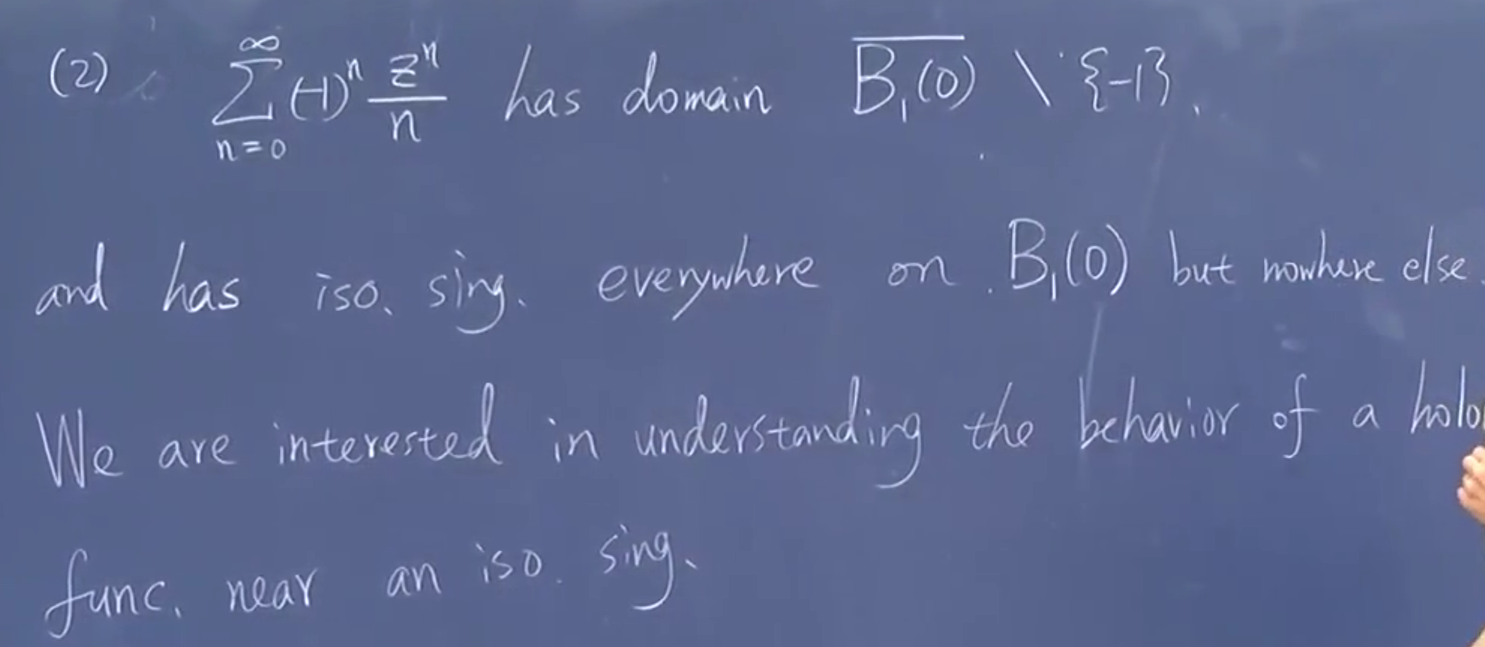 (2) $\sum_{n=0}^{\infty} (-1)^n \frac{z^n}{n}$ has domain $\overline{B_1(0)} \setminus \{-1\}$.
and has iso. sing. everywhere on $B_1(0)$ but nowhere else.
We are interested in understanding the behavior of a holo
func. near an iso. sing.